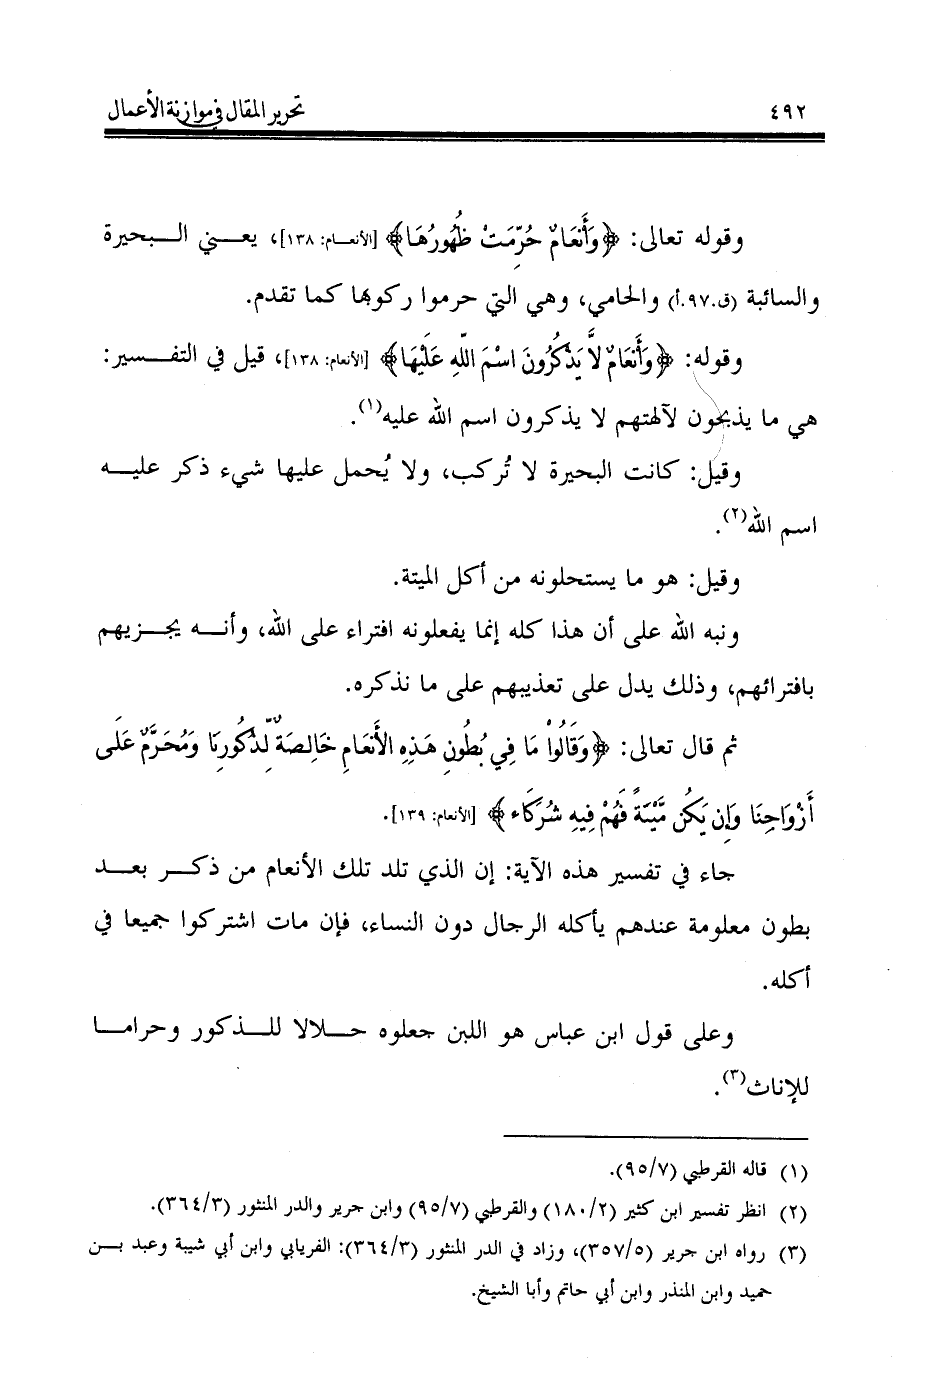 ٤٩٢ تحرير المقال في موازنة الأعمال
وقوله تعالى: ﴿وَأَنْعَامٌ حُرِّمَتْ ظُهُورُهَا﴾ [الأنعام: ١٣٨]، يعني البحيرة
والسائبة (ق.٩٧.أ) والحامي، وهي التي حرموا ركوبها كما تقدم.
وقوله: ﴿وَأَنْعَامٌ لاَّ يَذْكُرُونَ اسْمَ اللّهِ عَلَيْهَا﴾ [الأنعام: ١٣٨]، قيل في التفسير:
هي ما يذبحون لآلهتهم لا يذكرون اسم الله عليه(١).
وقيل: كانت البحيرة لا تُركب، ولا يُحمل عليها شيء ذكر عليه
اسم الله(٢).
وقيل: هو ما يستحلونه من أكل الميتة.
ونبه الله على أن هذا كله إنما يفعلونه افتراء على الله، وأنه يجزيهم
بافترائهم، وذلك يدل على تعذيبهم على ما نذكره.
ثم قال تعالى: ﴿وَقَالُواْ مَا فِي بُطُونِ هَذِهِ الأَنْعَامِ خَالِصَةٌ لِّذُكُورِنَا وَمُحَرَّمٌ عَلَى
أَزْوَاجِنَا وَإِن يَكُن مَّيْتَةً فَهُمْ فِيهِ شُرَكَاء﴾ [الأنعام: ١٣٩].
جاء في تفسير هذه الآية: إن الذي تلد تلك الأنعام من ذكر بعد
بطون معلومة عندهم يأكله الرجال دون النساء، فإن مات اشتركوا جميعا في
أكله.
وعلى قول ابن عباس هو اللبن جعلوه حلالا للذكور وحراما
للإناث(٣).
(١) قاله القرطبي (٩٥/٧).
(٢) انظر تفسير ابن كثير (١٨٠/٢) والقرطبي (٩٥/٧) وابن جرير والدر المنثور (٣٦٤/٣).
(٣) رواه ابن جرير (٣٥٧/٥)، وزاد في الدر المنثور (٣٦٤/٣): الفريابي وابن أبي شيبة وعبد بن
حميد وابن المنذر وابن أبي حاتم وأبا الشيخ.